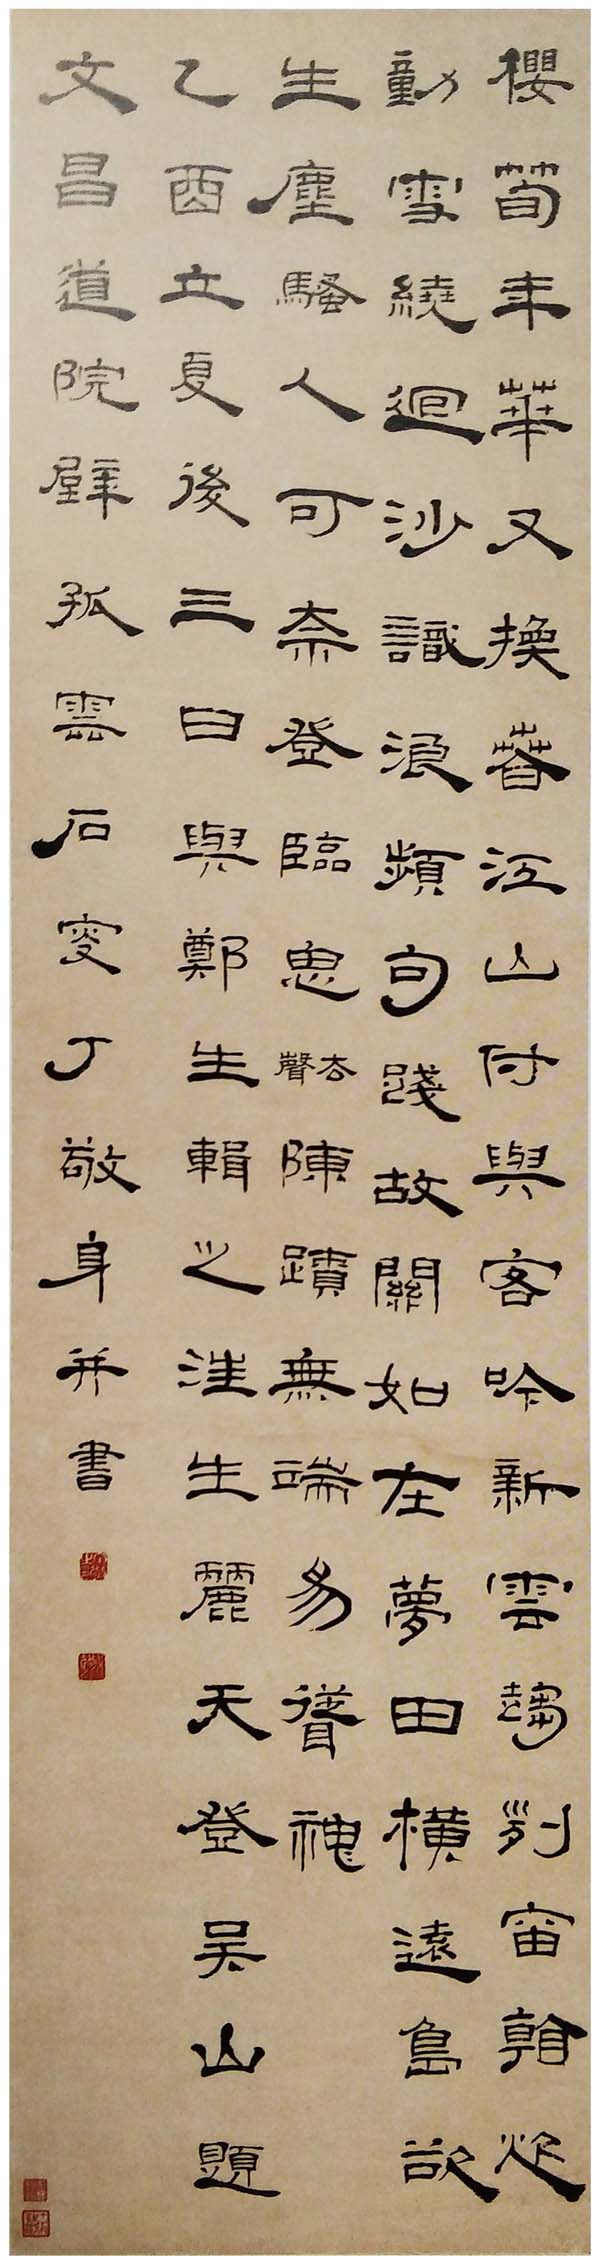 櫻筍年華又換春江山付與客吟新雲趨列宙看
動雪繞迴沙識浪頻句踐故關如在夢田橫遠島欲
生塵騷人可奈登臨思去聲陳蹟無端易聳神
乙酉立夏後三日與鄭生輯之汪生麗天登吳山題
文昌道院壁孤雲石叟丁敬身并書